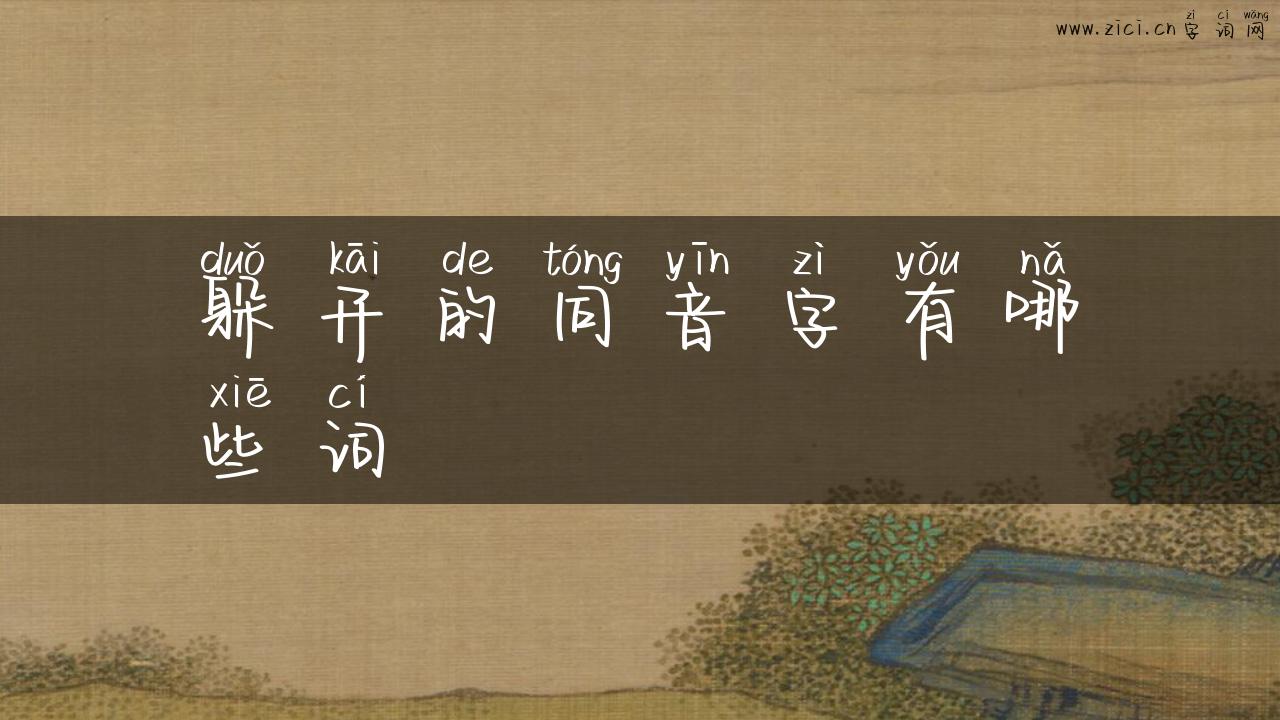 zì cí wǎng
www.zici.cn 字 词 网
duǒ kāi de tóng yīn zì yǒu nǎ
躲 开 的 同 音 字 有 哪
xiē cí
些 词